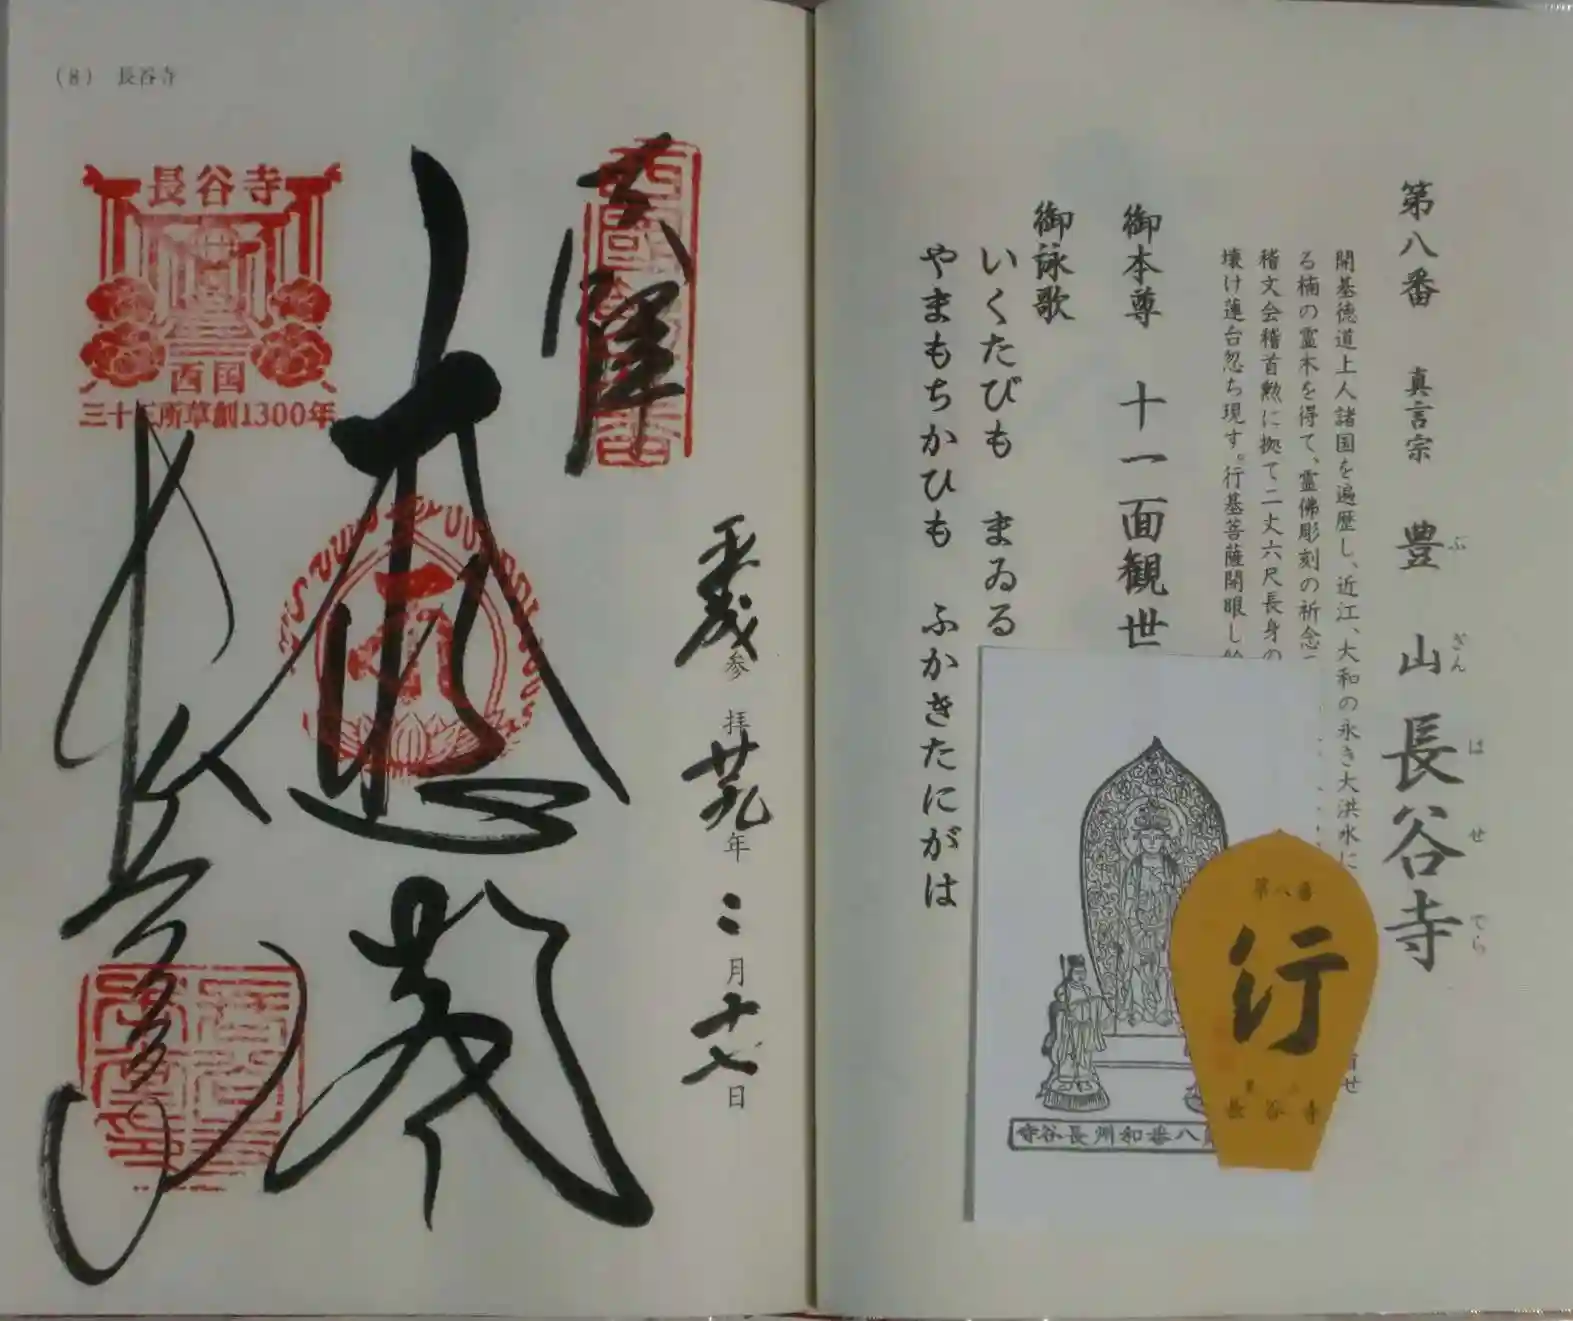 第八番 真言宗 豊山長谷寺
ぶ ざん は せ でら
開基徳道上人諸国を遍歴し、近江、大和の永き大洪水に
る楠の霊木を得て、霊佛彫刻の祈念
稽文会稽首勲に拠て二丈六尺長身の
壊け蓮台忽ち現す。行基菩薩開眼し
御本尊 十一面観世
御詠歌
いくたびも まゐる
やまもちかひも ふかきたにがは
寺谷長州和番八
第八番
行
長谷寺
(8) 長谷寺
奉拝
平成廿九年二月十七日
参拝
大悲閣
長谷寺
長谷寺
西国
三十三所草創1300年